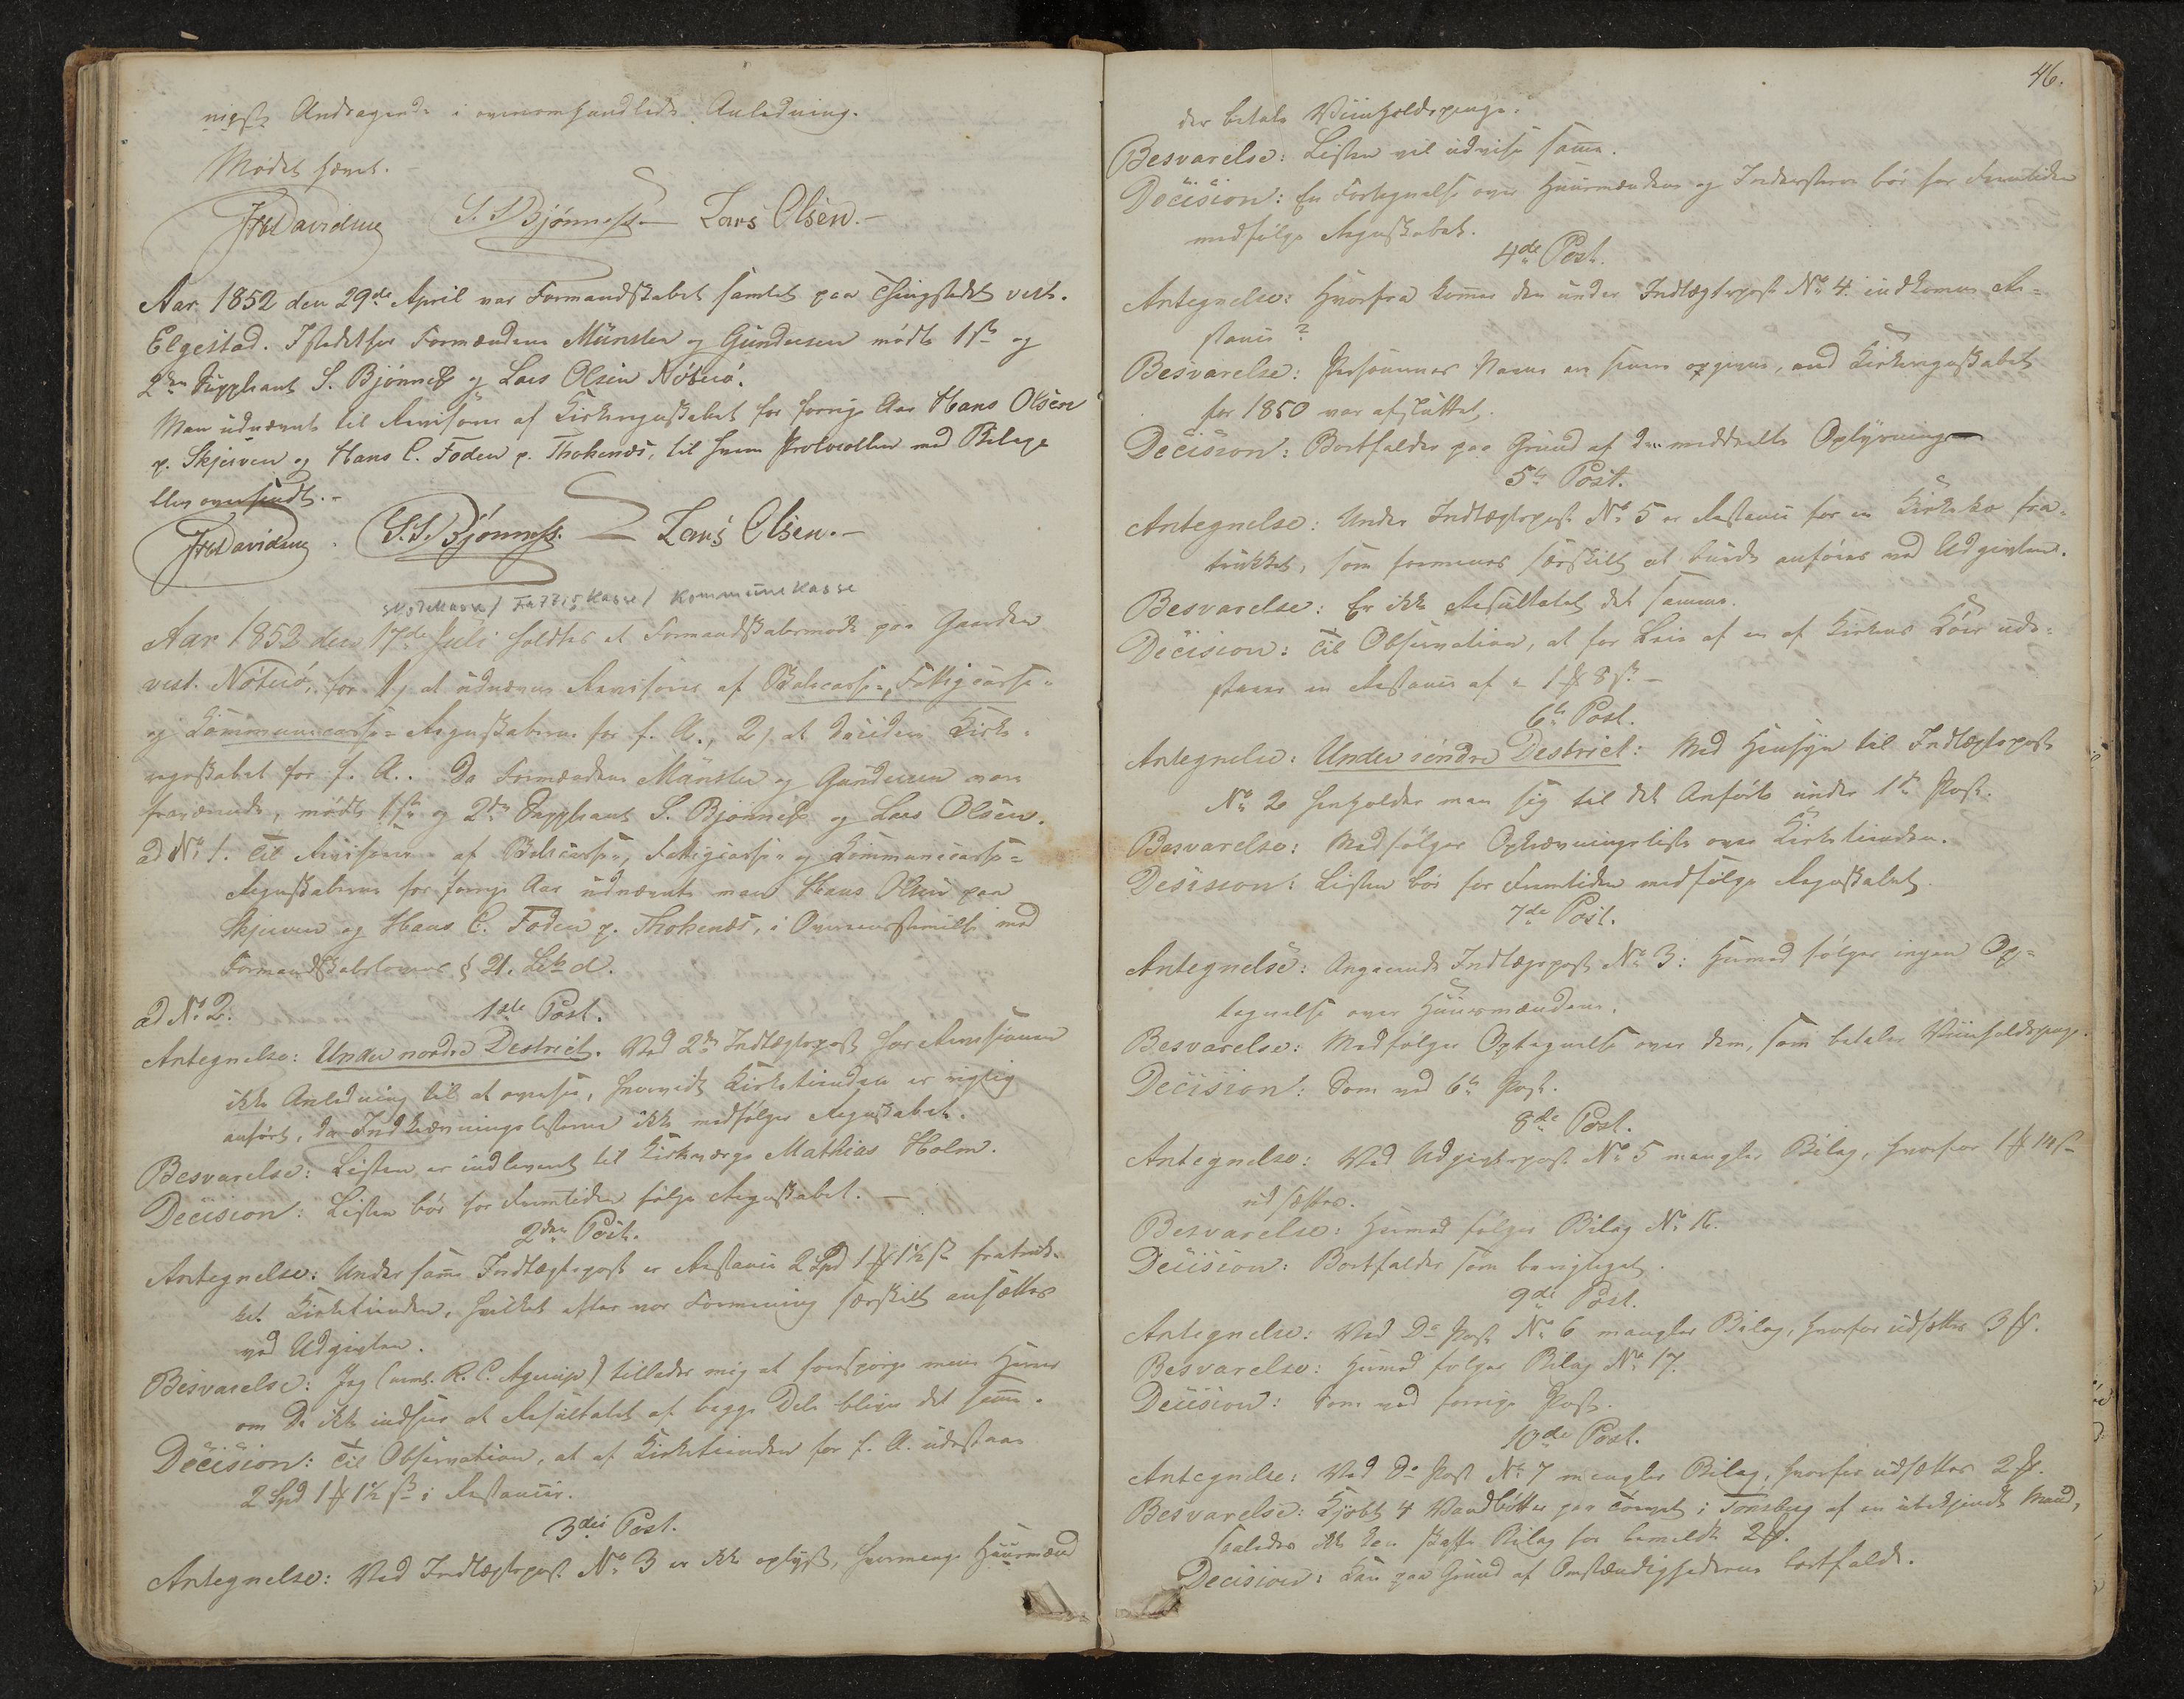 Andragende i ovenomhandlede Anledning.
Mødet hævet.
FHDavidsen S. S. Bjønness. Lars Olsen.
Aar 1852 den 29de April var Formandskabet samlet paa Thingstedet vest.
Elgestad. Istedetfor Formændene Münster og Gundersen mødte 1ste og
2den Suppleant S. Bjønness og Lars Olsen Nøterø.
Man udnævnte til Revisorer af Kirkeregnskabet for forrige Aar Hans Olsen
p. Skjerven og Hans C. Foden p. Thokenæs, til hvem Protocollen med Bilage
blev oversendt.
FHDavidsen. S. S. Bjønness. Lars Olsen.
Skolekasse / Fattigkasse / Kommunekasse
Aar 1852 den 17de Juli holdtes et Formandskabsmøde paa Gaarden
vest. Nøterø, for 1, at udnævne Revisorer af Skolecasse-, Fattigcasse-
og Kommunecasse-Regnskaberne for f. A., 2) at decidere Kirke-
regnskabet for f. A.. Da Formændene Münster og Gundersen vare
fraværende, mødte 1ste og 2den Suppleant S. Bjønness og Lars Olsen.
ad No 1. Til Revisorer af Skolecasse-, Fattigcasse- og Kommunecasse-
Regnskaberne for forrige Aar udnævnte man Hans Olsen paa
Skjerven og Hans C. Foden p. Thokenæs, i Overensstemmelse med
Formandskabslovens § 21. Litr. d.
ad No 2. 1ste Post.
Antegnelse: Under nordre Destrict. Ved 2den Indtægtspost har Revisionen
ikke Anledning til at oversee, hvorvidt Kirketienden er rigtig
anført, da Indkrævningslisterne ikke medfølger Regnskabet.
Besvarelse: Listen er indleveret til Kirkeværge Mathias Holm.
Decision: Listen bør for Fremtiden følge Regnskabet. —
2den Post.
Antegnelse: Under samme Indtægtspost er Restance 2 Spd 1 ₰ 1½ s fratruk-
ket Kirketienden, hvilket efter vor Formening særskilt ansættes
ved Udgivten.
Besvarelse: Jeg (nml. R. C. Agerup) tillader mig at forespørge mine Herrer
om De ikke indseer at Resultatet af begge Dele bliver det samme.
Decision: Til Observation, at af Kirketienden for f. A. udestaar
2 Spd 1 ₰ 1½ s i Restancer.
3die Post.
Antegnelse: Ved Indtægtspost No 3 er ikke oplyst, hvormange Huusmænd
46.
der betale Viinholdspenge.
Besvarelse: Listen vil udvise samme.
Decision: En Fortegnelse over Huusmændene og Inderster bør for Fremtiden
medfølge Regnskabet.
4de Post.
Antegnelse: Hvorfra kommer den under Indtægtspost No 4. indkomne Re-
stance?
Besvarelse: Personernes Navne er senere opgivne, end Kirkeregnskabet
for 1850 var afsluttet.
Decision: Bortfalder paa Grund af den meddeelte Oplysning
5te Post.
Antegnelse: Under Indtægtspost No 5 er Restance for en Kirkeko fra-
trukket, som formenes særskilt at burde anføres ved Udgivten.
Besvarelse: Er ikke Resultatet det samme.
Decision: Til Observation, at for Leie af en af Kirkens Køer ude-
staaer en Restance af - 1 ₰ 8 s. —
6te Post.
Antegnelse: Under søndre Destrict: Med Hensyn til Indtægtspost
No 2 henholder man sig til det Anførte under 1ste Post.
Besvarelse: Medfølger Opkrævningsliste over Kirketienden.
Desision: Listen bør for Fremtiden medfølge Regnskabet.
7de Post.
Antegnelse: Angaaende Indtægtspost No 3: Hermed følger ingen Op-
tegnelse over Huusmændene.
Besvarelse: Medfølger Optegnelse over dem, som betaler Viinholdspenge.
Decision: Som ved 6te Post.
8de Post.
Antegnelse: Ved Udgiftspost No 5 mangler Bilag, hvorfor 1 ₰ 14 s
udsættes.
Besvarelse: Hermed følger Bilag No 16.
Decision: Bortfalder som berigtiget.
9de Post.
Antegnelse: Ved Do Post No 6 mangler Bilag, hvorfor udsættes 3 ₰.
Besvarelse: Hermed følger Bilag No 17.
Decision: Som ved forrige Post.
10de Post.
Antegnelse: Ved Do Post No 7 mangler Bilag, hvorfor udsættes 2 ₰.
Besvarelse: Kjøbt 4 Vandbøtter paa Torvet i Tønsberg af en ubekjendt Mand,
saaledes ikke kan skaffe Bilag for bemeldte 2 ₰.
Decision: Kan paa Grund af Omstændighederne bortfalde.